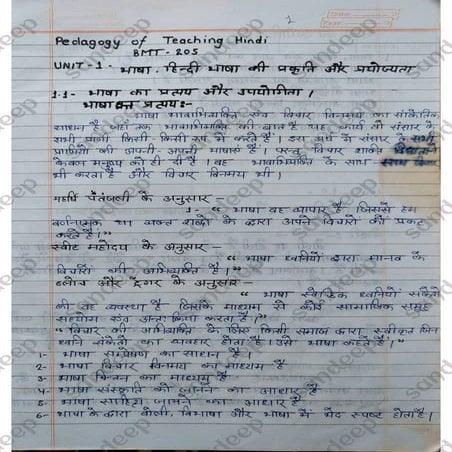 1
Pedagogy of Teaching Hindi
BMT-205
UNIT-1- भाषा, हिन्दी भाषा की प्रकृति और प्रयोज्यता
1.1- भाषा का प्रत्यय और उपयोगिता।
भाषा का प्रत्यय:-
भाषा भावाभिव्यक्ति एवं विचार विनमय का सांकेतिक
साधन है, जहां तक भावाभिव्यक्ति की बात है यह कार्य तो संसार के
सभी प्राणी किसी किसी रूप में करते हैं। इस अर्थ में संसार के सभी
प्राणियों की अपनी अपनी भाषाएं हैं। परन्तु विचार शक्ति
केवल मनुष्य को ही दी है। वह भावाभिव्यक्ति के साथ-
भी करता है और विचार विनमय भी।
महर्षि पतंजली के अनुसार
1- "भाषा वह व्यापार है, जिससे हम
वर्णनात्मक या व्यक्त शब्दों के द्वारा अपने विचारों को प्रकट
करते हैं।"
स्वीट महोदय के अनुसार-
"भाषा ध्वनियों द्वारा मानव के
विचारों की अभिव्यक्ति है।"
ब्लोच और ट्रैगर के अनुसार-
"भाषा स्वैच्छिक ध्वनियों संकेतों
की वह व्यवस्था है, जिसके माध्यम से कोई सामाजिक समूह
सहयोग एवं अन्त: क्रिया करता है।"
"विचार की अभिव्यक्ति के लिए किसी समाज द्वारा स्वीकृत जिन
ध्वनि संकेतों का व्यवहार होता है। उसे भाषा कहते हैं।"
1- भाषा सम्प्रेषण का साधन है।
2- भाषा विचार विनमय का माध्यम है
3- भाषा चिन्तन का माध्यम है
4- भाषा संस्कृति को जानने का आधार है
5- भाषा साहित्य जानने का आधार है
6- भाषा के द्वारा बोली, विभाषा और भाषा में भेद स्पष्ट होता है।
sandeep